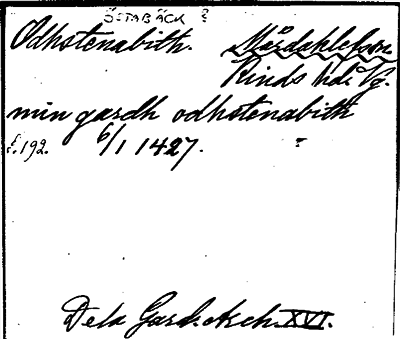 ÖSTABÄCK ?
Odhstenabith. Mårdaklefs sn.
Kinds hd. Vg.
min gardh odhstenabith
f. 192. 6/1 1427. ?
De la Gard. Arch. XVI.